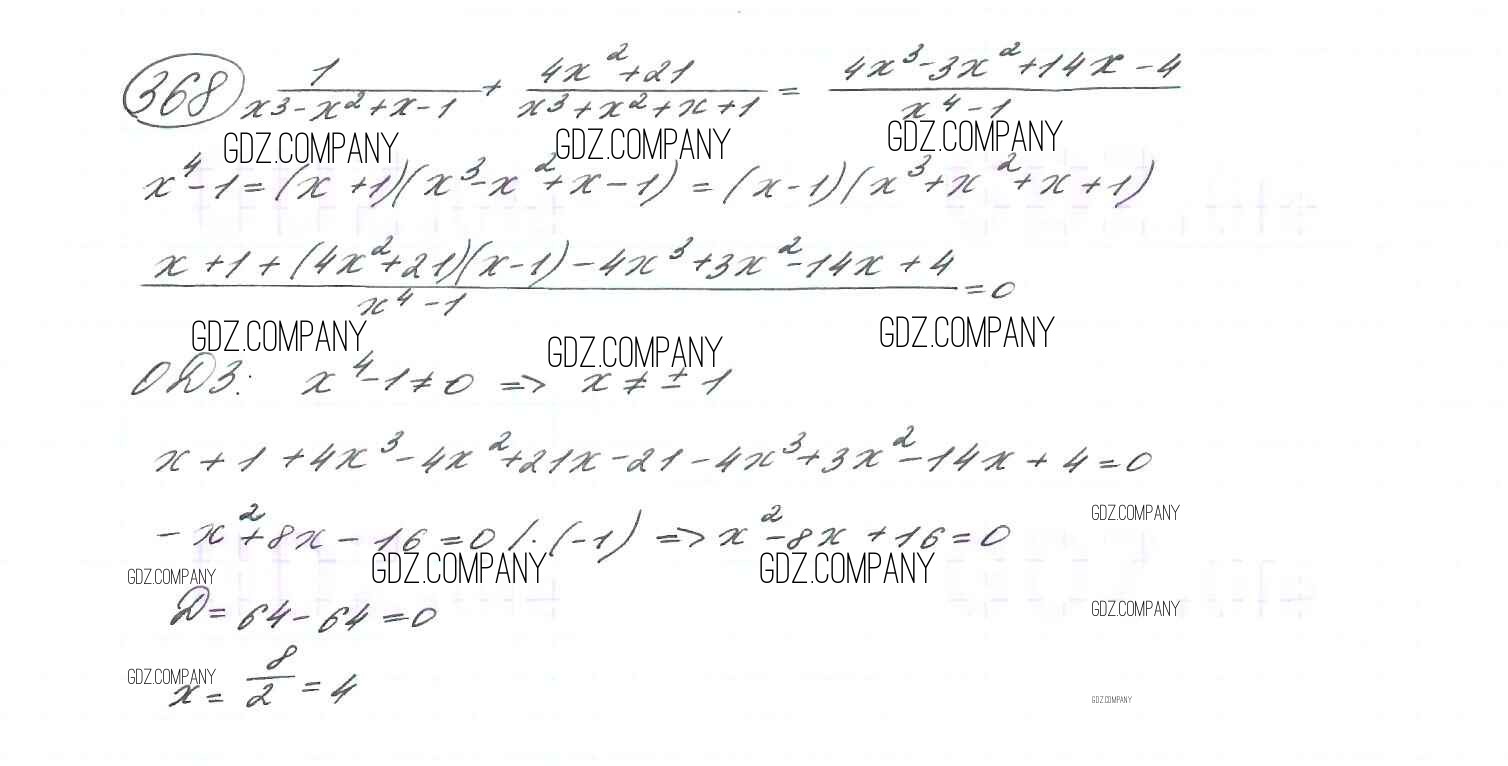 368 1/(x³-x²+x-1) + (4x²+21)/(x³+x²+x+1) = (4x³-3x²+14x-4)/(x⁴-1)
GDZ.COMPANY GDZ.COMPANY GDZ.COMPANY
x⁴-1=(x+1)(x³-x²+x-1)=(x-1)(x³+x²+x+1)
(x+1+(4x²+21)(x-1)-4x³+3x²-14x+4)/(x⁴-1)=0
GDZ.COMPANY GDZ.COMPANY GDZ.COMPANY
ОДЗ: x⁴-1≠0 => x≠±1
x+1+4x³-4x²+21x-21-4x³+3x²-14x+4=0
GDZ.COMPANY
-x²+8x-16=0 /·(-1) => x²-8x+16=0
GDZ.COMPANY GDZ.COMPANY GDZ.COMPANY
D=64-64=0
GDZ.COMPANY
GDZ.COMPANY
x=8/2=4
GDZ.COMPANY